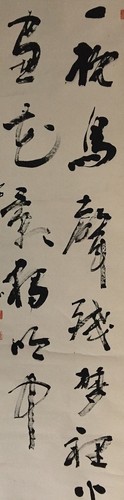 一枕鳥聲殘夢裡
窗花影獨吟中